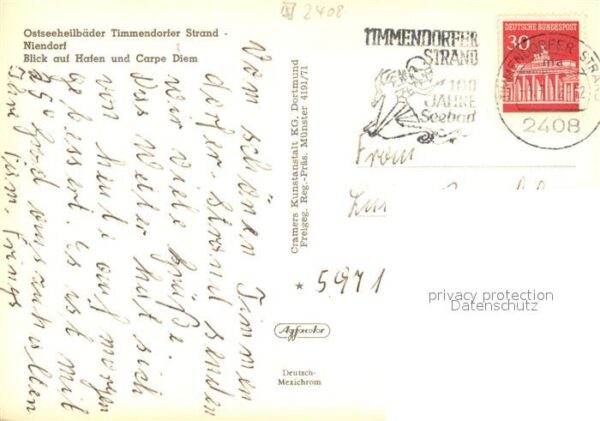 IV 2408
Ostseeheilbäder Timmendorfer Strand -
Niendorf
Blick auf Hafen und Carpe Diem
Vom schönen Timmen
dorfer-Strand senden
wir viele Grüße.
Das Wetter hat sich
von heute auf morgen
gebessert. es ist mit
25° Grad auszuhalten
Ihre Fam. Frings
Cramers Kunstanstalt KG, Dortmund
Freigeg. Reg.-Präs. Münster 4191/71
* 5971
Agfacolor
Deutsch-
Mexichrom
TIMMENDORFER
STRAND
100
JAHRE
Seebad
DEUTSCHE BUNDESPOST
30
TIMMENDORFER STRAND
2408
Frau
privacy protection
Datenschutz